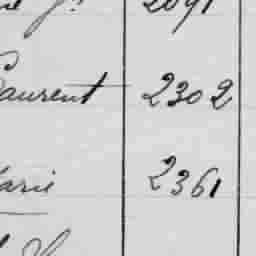 2091
Laurent 2302
Marie 2361